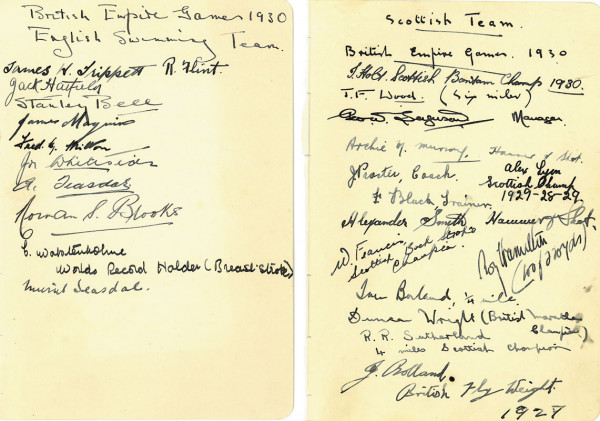 British Empire Games 1930
English Swimming Team.
James H. Trippett R. Flint.
Jack Hatfield
Stanley Bell
James Maguire
Fred. G. Milton
Joe Whiteside
A. Teasdale
Norman S. Brooks
C. Wolstenholme
Worlds Record Holder (Breast-stroke)
Muriel Teasdale.
Scottish Team.
British Empire Games. 1930
T. Holt Scottish Bantam Champ 1930.
T.F. Wood. (Six miles)
Geo. W. Ferguson Manager.
Archie M. Murray. Hammer & Shot.
J Porter, Coach. Alex Lyon
Scottish Champ
1927-28-29
F Black, Trainer
Alexander Smith Hammer & Shot
W. Francis Back Stroke
Scottish Champion
Roy Hamilton
(100/220yds)
Tom Borland, 1/4 mile.
Duncan Wright (British Marathon
Champion)
R. R. Sutherland
4 miles Scottish Champion
J. Rolland.
British Fly Weight.
1927